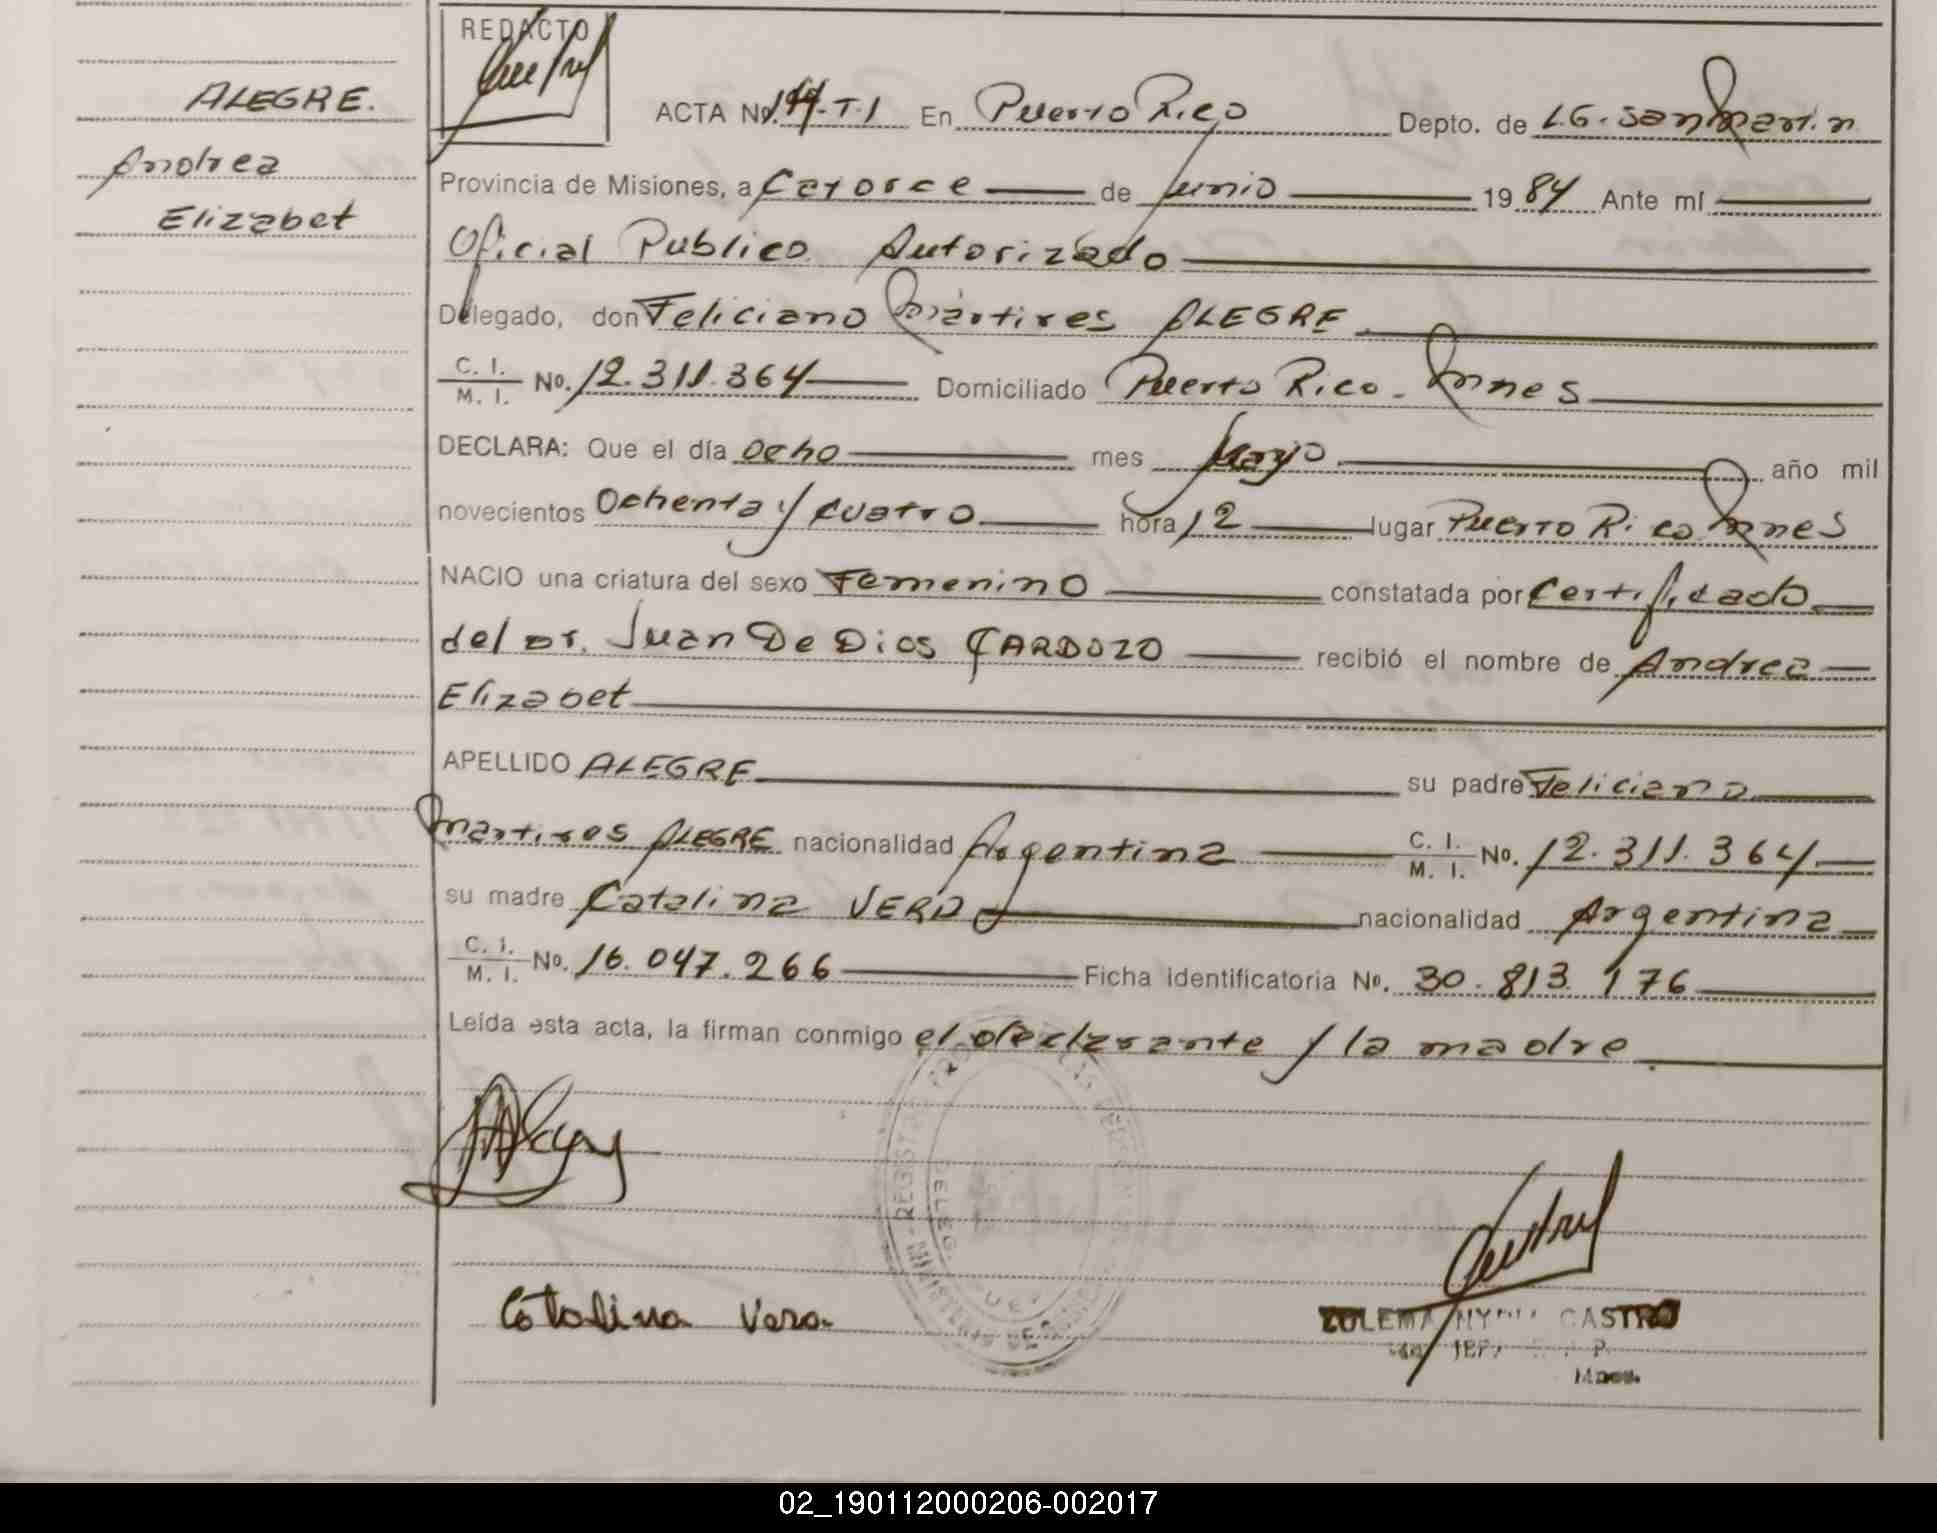 REDACTO
ALEGRE.
Andrea
Elizabet
ACTA No. 144-T.I En Puerto Rico Depto. de L.G. San Martin
Provincia de Misiones, a Catorce de Junio 1984 Ante mí
Oficial Publico Autorizado
Delegado, don Feliciano Mártires ALEGRE
C. I. / M. I. No. 12.311.364 Domiciliado Puerto Rico - Mnes
DECLARA: Que el día ocho mes Mayo año mil
novecientos Ochenta y cuatro hora 12 lugar Puerto Rico Mnes
NACIO una criatura del sexo Femenino constatada por Certificado
del Dr. Juan De Dios CARDOZO recibió el nombre de Andrea
Elizabet
APELLIDO ALEGRE su padre Feliciano
Martires ALEGRE nacionalidad Argentina C. I. / M. I. No. 12.311.364
su madre Catalina VERA nacionalidad Argentina
C. I. / M. I. No. 16.047.266 Ficha identificatoria No. 30.813.176
Leída esta acta, la firman conmigo el declarante y la madre
Catalina Vera
ZULEMA CASTRO
Mnes.
02_190112000206-002017